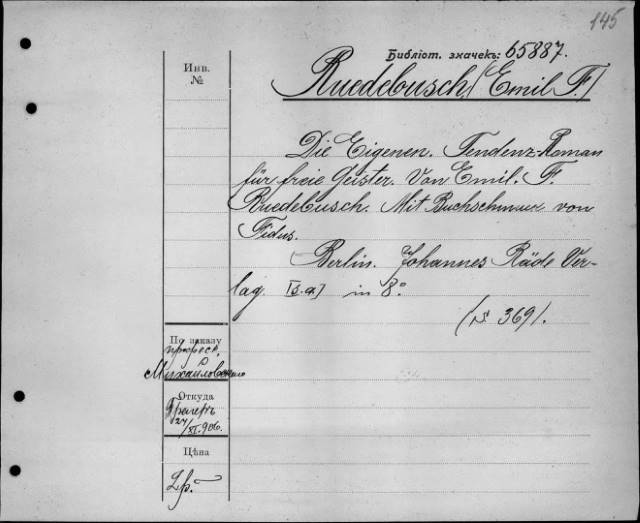 145
Библіот. значекъ: 65887.
Инв.
№
Ruedebusch (Emil F.)
Die Eigenen. Tendenz-Roman
für freie Geister. Von Emil. F.
Ruedebusch. Mit Buchschmuck von
Fidus.
Berlin. Johannes Räde Ver-
lag [s.a.] in 8°.
369).
По заказу
Михайловскаго
Откуда
27/XI.906.
Цѣна
2р.